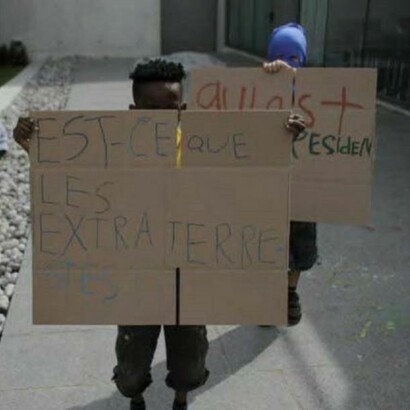 EST-CE QUE
LES
EXTRATERRE
STES
qui est
PRESIDEN